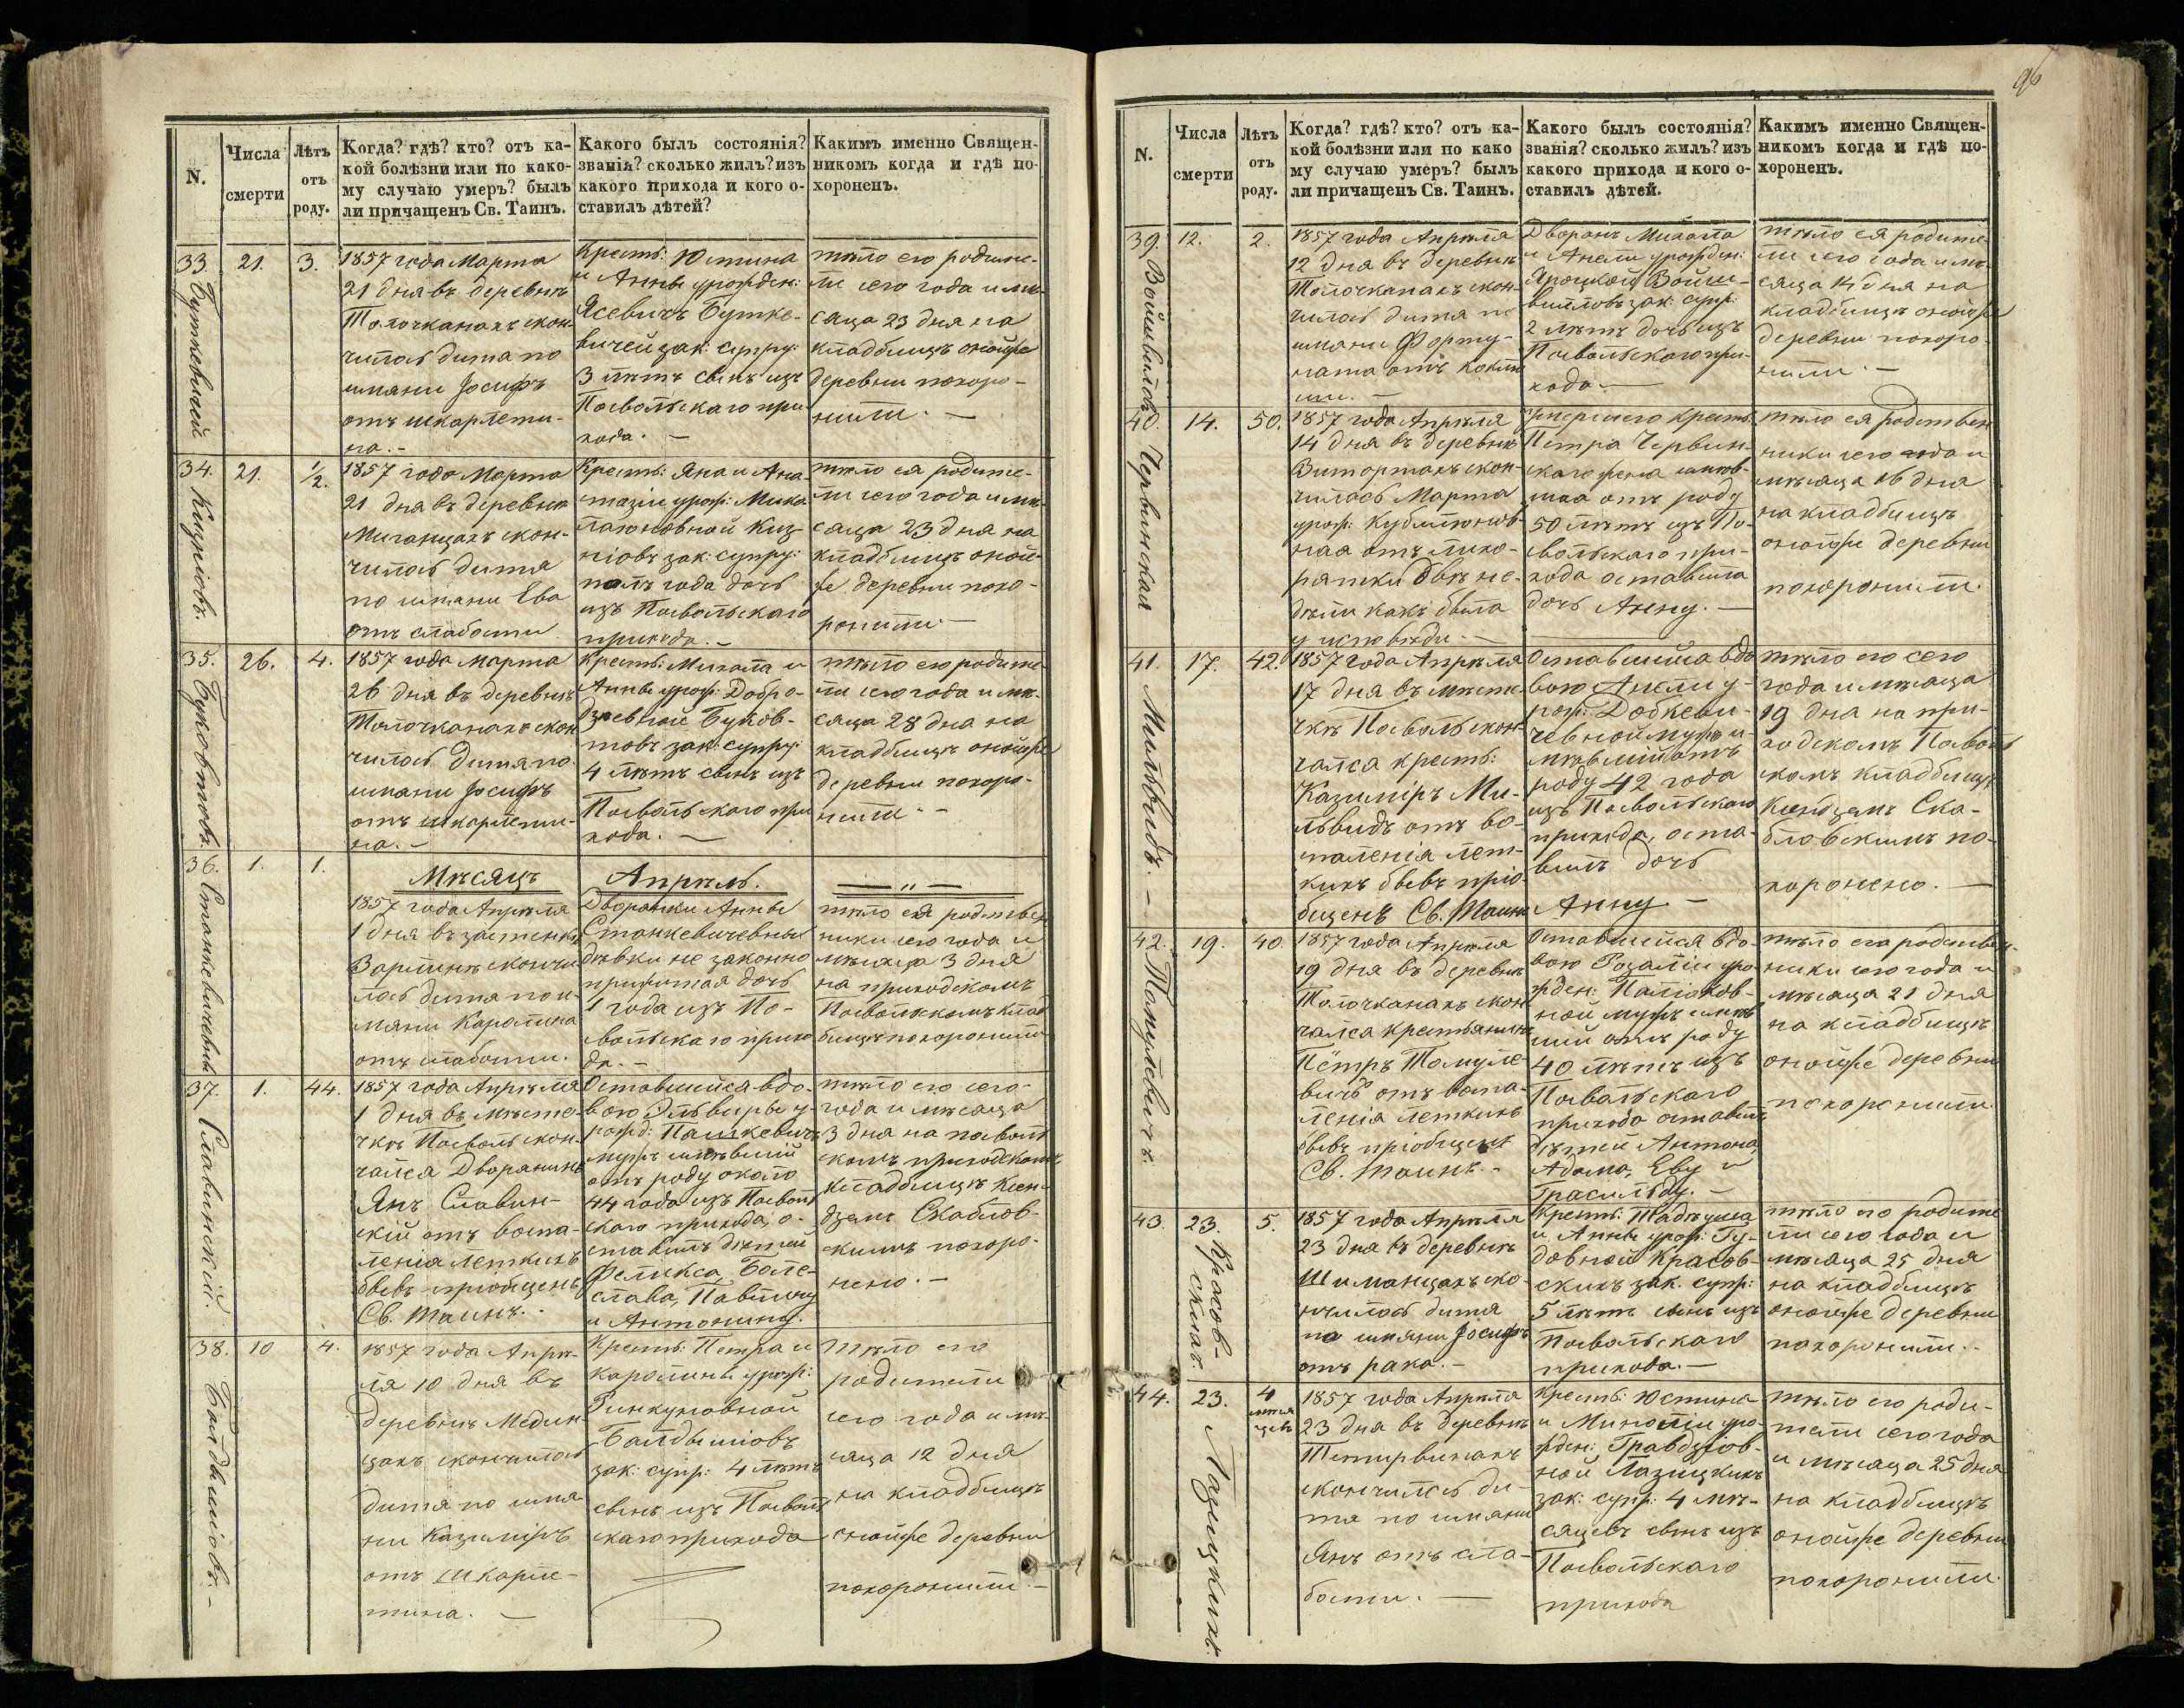 N.
Числа
смерти
Лѣтъ
отъ
роду.
Когда? гдѣ? кто? отъ ка-
кой болѣзни или по како-
му случаю умеръ? былъ
ли причащенъ Св. Таинъ.
Какого былъ состоянія?
званія? сколько жилъ? изъ
какого прихода и кого о-
ставилъ дѣтей?
Какимъ именно Священ-
никомъ когда и гдѣ по-
хороненъ.
33
Буткевичей
21.
3.
1857 года Марта
21 дня въ деревнѣ
Толочканахъ скон-
чилось дитя по
имяни Іосифъ
отъ шкарлети-
на.-
Кресть: Юстина
и Анны урожден:
Ясевичъ Бутке-
вичей зак: супру:
3 лѣтъ сынъ изъ
Посвольскаго при
хода. -
тѣло его родите-
ли сего года и мѣ-
сяца 23 дня на
кладбищѣ онойже
деревни похоро-
нили. -
34.
21.
½.
1857 года Марта
21 дня въ деревнѣ
скон-
чилось дитя
по имяни Ева
отъ слабости
Кресть: Яна и Ана-
стазіи урож: Мико-
лаюновной Киз-
ніовъ зак: супру:
полъ года дочь
изъ Посвольскаго
прихода. -
тѣло ея родите-
ли сего года и мѣ-
сяца 23 дня на
кладбищѣ оной-
же деревни похо-
ронили. -
35.
Буковтовъ
26.
4.
1857 года Марта
26 дня въ деревнѣ
Толочканахъ скон
чилось дитя по
имяни Іосифъ
отъ шкарлети-
на. -
Крестъ: Михала и
Анны урож: Добро-
дзѣевной Буков-
товъ зак: супру:
4 лѣтъ сынъ изъ
Посвольскаго при
хода. -
тѣло его родите
ли сего года и мѣ-
сяца 28 дня на
кладбищѣ онойже
деревни похоро-
нили. -
36.
Станкевичевны
1.
1.
Мѣсяцъ
Апрѣль.
— „ —
1857 года Апрѣля
1 дня въ застенкѣ
Зарлинѣ скончи
лось дитя по и-
мяни Каролина
отъ слабости.
Дворянки Анны
Станкевичевны
дѣвки не законно
прижитая дочь
1 года изъ По-
свольскаго прихо
да. -
тѣло ея родствен
ники сего года и
мѣсяца 3 дня
на приходскомъ
Посвольскомъ клад
бищѣ похоронили
37.
Славинскій.
1.
44.
1857 года Апрѣля
1 дня въ мѣсте-
чкѣ Посволь скон-
чался Дворянинъ
Янъ Славин-
скій отъ воспа-
ленія легкихъ
бывъ пріобщенъ
Св. Таинъ. -
Оставшейся вдо-
вою Эльвиры у-
рожд: Пашкевичъ
мужъ имѣвшій
отъ роду около
44 года изъ Посволь
скаго прихода, о-
ставилъ дѣтей
Феликса, Боле-
слава, Павлину
и Антонину.
тѣло его сего-
года и мѣсяца
3 дня на посволь
скомъ приходскомъ
кладбищѣ Ксен-
дземъ Скаблов-
скимъ похоро-
нено. -
38.
Балдышіовъ. -
10
4.
1857 года Апрѣ-
ля 10 дня въ
деревнѣ Медин-
цахъ скончилось
дитя по имя-
ни Казиміръ
отъ шкарле-
тина. -
Крестъ: Петра и
Каролины урож:
Ринкуновной
Балдышіовъ
зак: супр: 4 лѣтъ
сынъ изъ Посволь
скаго прихода
тѣло его
родители
сего года и мѣ-
сяца 12 дня
на кладбищѣ
онойже деревни
похоронили. -
96
N.
Числа
смерти
Лѣтъ
отъ
роду.
Когда? гдѣ? кто? отъ ка-
кой болѣзни или по како
му случаю умеръ? былъ
ли причащенъ Св. Таинъ.
Какого былъ состоянія?
званія? сколько жилъ? изъ
какого прихода и кого о-
ставилъ дѣтей.
Какимъ именно Священ-
никомъ когда и гдѣ по-
хороненъ.
39.
Войшвиловъ
12.
2.
1857 года Апрѣля
12 дня въ деревнѣ
Толочканахъ скон-
чилось дитя по
имяни Форту-
ната отъ коклю
ши. -
Дворянъ Михала
и Анели урожден:
Яроцкой Войш-
вилловъ зак: супр:
2 лѣтъ дочь изъ
Посвольскаго при-
хода. -
тѣло ея родите-
ли сего года и мѣ-
сяца 14 дня на
кладбищѣ онойже
деревни похоро-
нили. -
40.
Червинская
14.
50.
1857 года Апрѣля
14 дня въ деревнѣ
скон-
чилась Марта
урож: Кубилюнов-
ная отъ лихо-
радки двѣ не-
дѣли какъ была
у исповѣди. -
Умершего крестъ:
Петра Червин-
скаго жена имѣв-
шая отъ роду
50 лѣтъ изъ По-
свольскаго при-
хода оставила
дочь Анну. -
тѣло ея родствен
ники сего года и
мѣсяца 16 дня
на кладбищѣ
онойже деревни
похоронили.
41.
Мильвидъ. -
17.
42.
1857 года Апрѣля
17 дня въ мѣсте-
чкѣ Посволь скон-
чался крестъ:
Казиміръ Ми-
львидъ отъ во-
спаленія лег-
кихъ бывъ пріо-
бщенъ Св. Таинъ
Оставшейся вдо
вою Анели у-
рож: Добкеви-
чевной мужъ и-
мѣвшій отъ
роду 42 года
изъ Посвольскаго
прихода, оста-
вилъ дочь
Анну -
тѣло его сего
года и мѣсяца
19 дня на при-
ходскомъ Посволь
скомъ кладбищѣ
Ксендземъ Ска-
бловскимъ по-
хоронено. -
42.
Томулевичъ.
19.
40.
1857 года Апрѣля
19 дня въ деревнѣ
Толочканахъ скон
чался крестьянинъ
Пётръ Томуле-
вичъ отъ воспа-
ленія легкихъ
бывъ пріобщенъ
Св. Таинъ. -
Оставшейся вдо-
вою Розаліи уро-
жден: Паліонов-
ной мужъ имѣв
шій отъ роду
40 лѣтъ изъ
Посвольскаго
прихода оставилъ
дѣтей Антона,
Адама, Еву и
Грасильду. -
тѣло его родствен-
ники сего года и
мѣсяца 21 дня
на кладбищѣ
онойже деревни
похоронили.
43.
Красов-
скихъ
23.
5.
1857 года Апрѣля
23 дня въ деревнѣ
Шиманцахъ ско-
нчилось дитя
по имяни Іосифъ
отъ рака. -
Крестъ: Тадеуша
и Анны урож: Гу-
довной Красов-
скихъ зак. супр:
5 лѣтъ сынъ изъ
Посвольскаго
прихода. -
тѣло его родите
ли сего года и
мѣсяца 25 дня
на кладбищѣ
онойже деревни
похоронили. -
44.
Лазицкихъ.
23.
4
мѣся
цевъ
1857 года Апрѣля
23 дня въ деревнѣ
Тетирвинахъ
скончилось ди-
тя по имяни
Янъ отъ сла-
бости. -
Крестъ: Юстина
и Михалии уро-
жден: Гравдзіов-
ной Лазицкихъ
зак: супр: 4 мѣ-
сяцевъ сынъ изъ
Посвольскаго
прихода
тѣло его роди-
тели сего года
и мѣсяца 25 дня
на кладбищѣ
онойже деревни
похоронили.